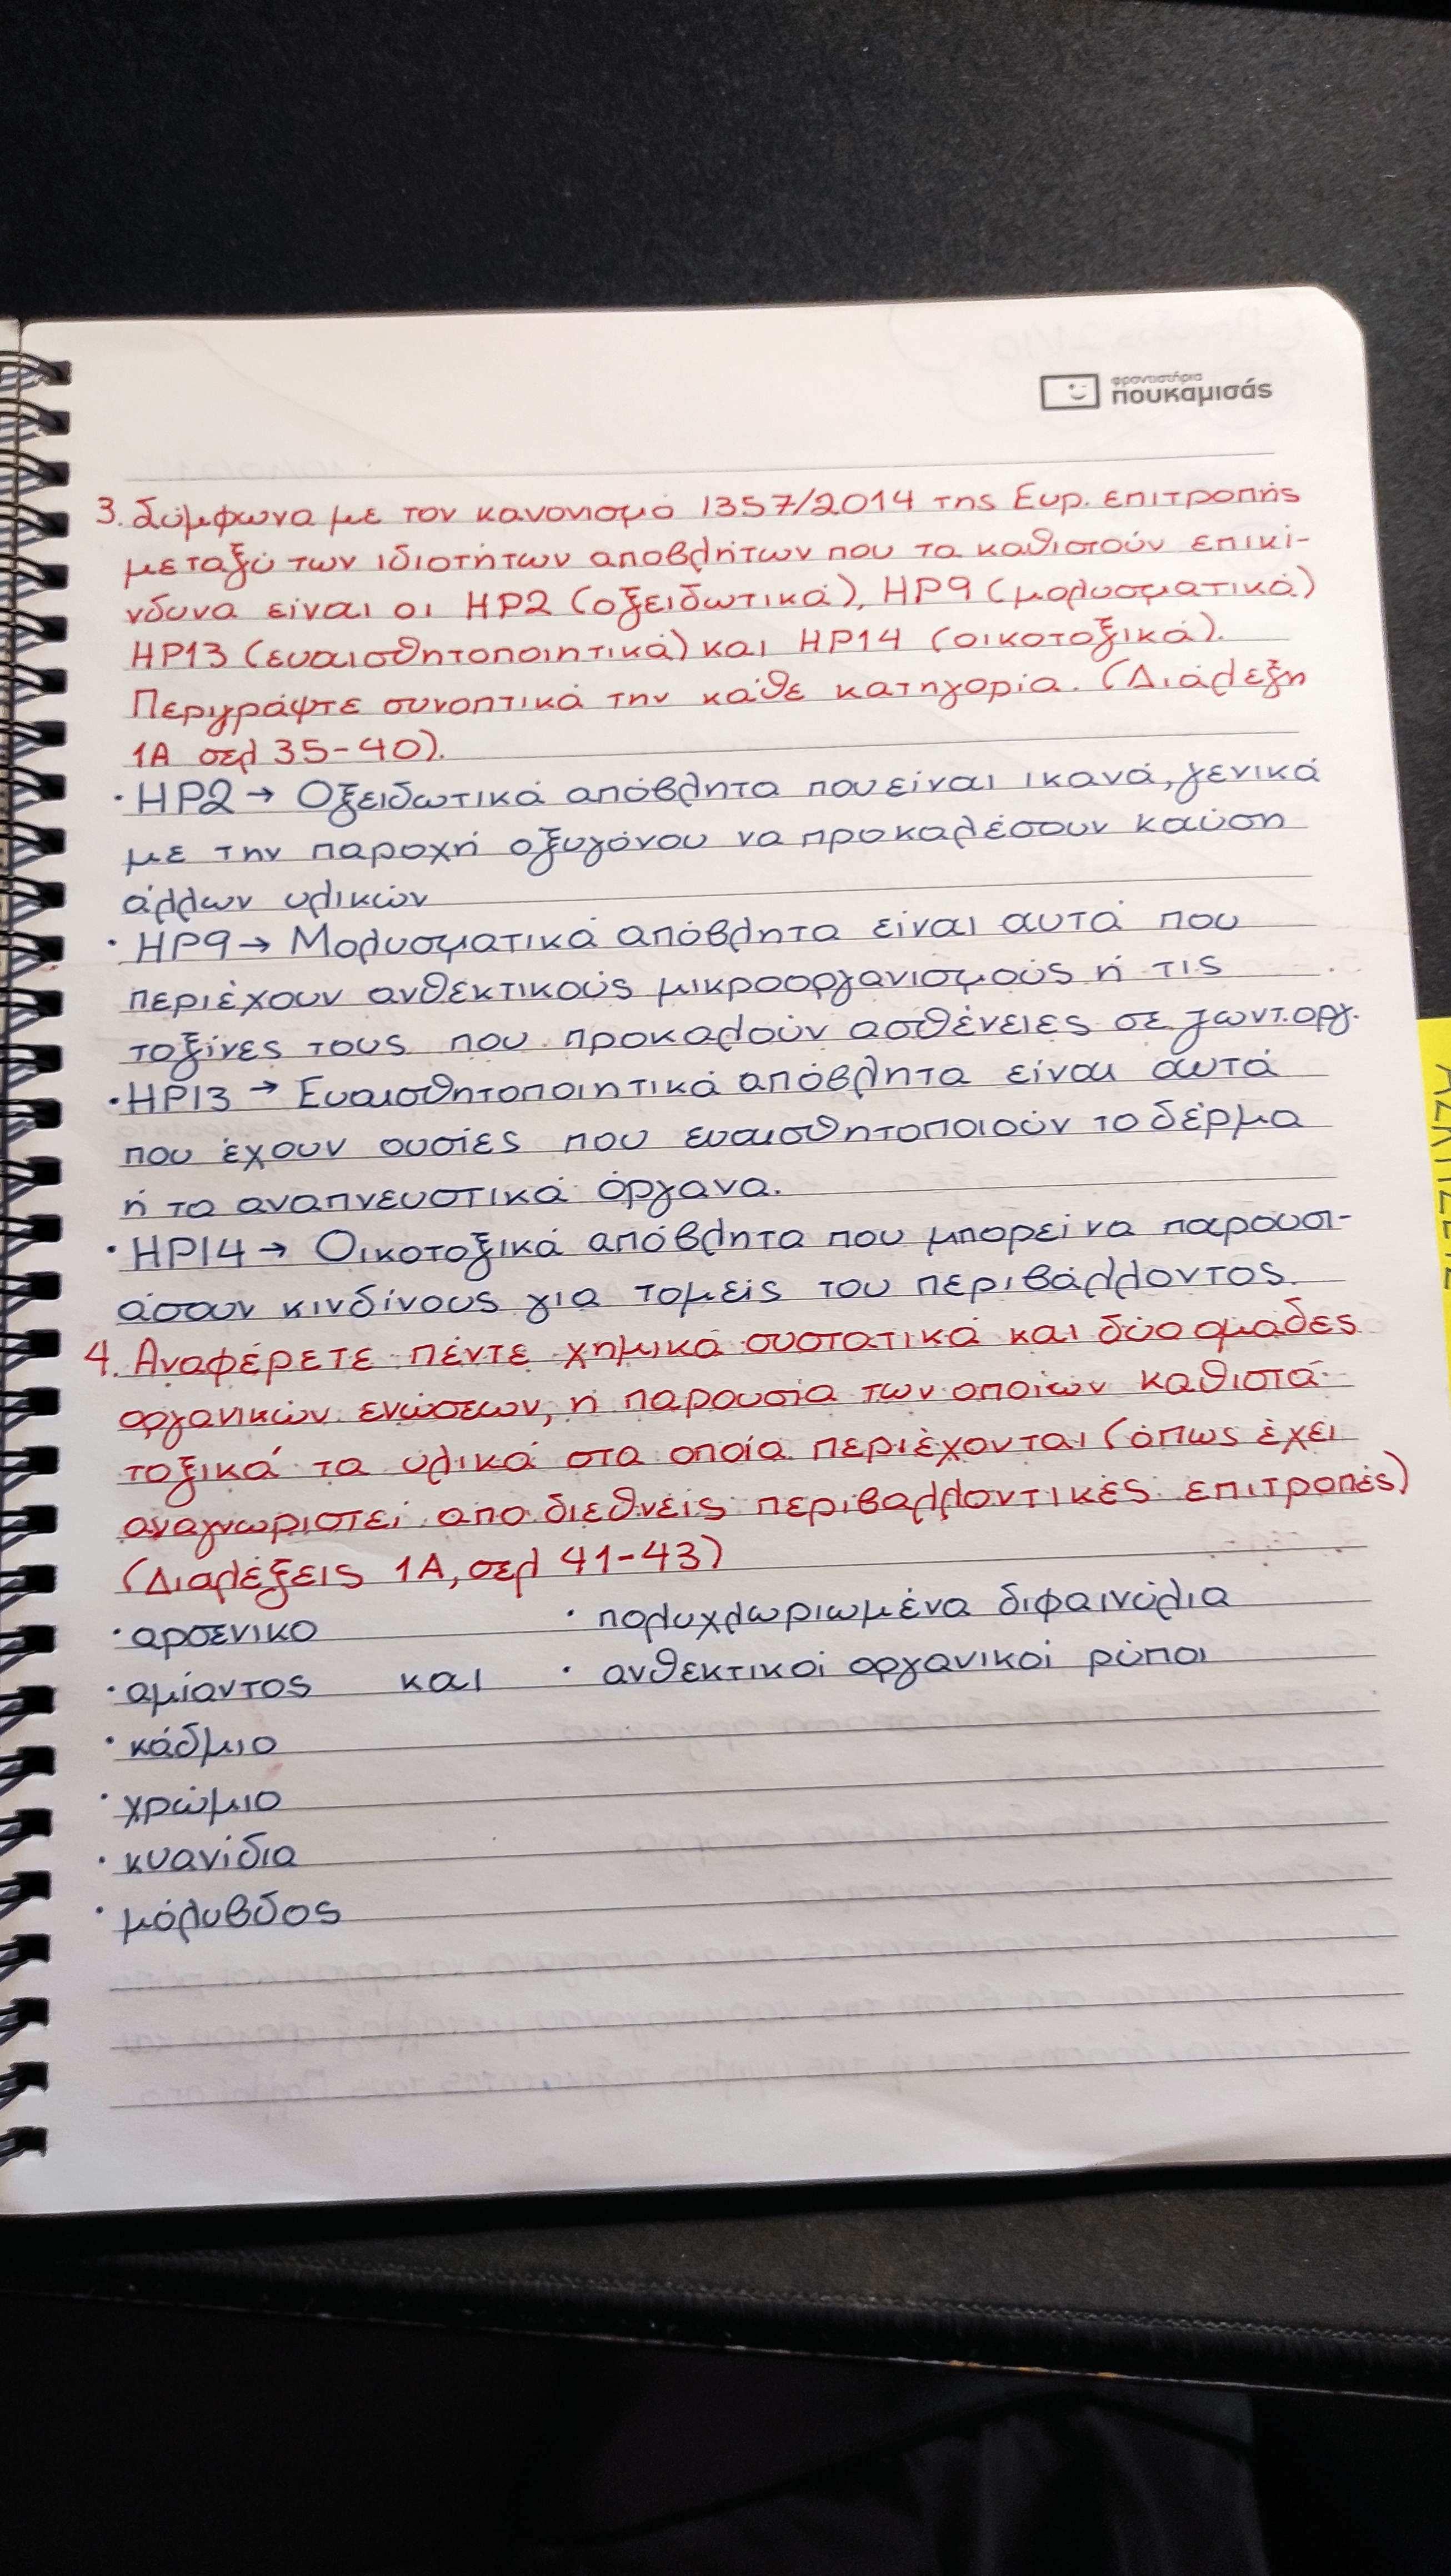 φροντιστήρια
πουκαμισάς
3. Σύμφωνα με τον κανονισμό 1357/2014 της Ευρ. επιτροπής
μεταξύ των ιδιοτήτων αποβλήτων που τα καθιστούν επικί-
νδυνα είναι οι HP2 (οξειδωτικά), HP9 (μολυσματικά)
HP13 (ευαισθητοποιητικά) και HP14 (οικοτοξικά).
Περιγράψτε συνοπτικά την κάθε κατηγορία. (Διάλεξη
1Α σελ 35-40).
• HP2 → Οξειδωτικά απόβλητα που είναι ικανά, γενικά
με την παροχή οξυγόνου να προκαλέσουν καύση
άλλων υλικών
• HP9 → Μολυσματικά απόβλητα είναι αυτά που
περιέχουν ανθεκτικούς μικροοργανισμούς ή τις
τοξίνες τους που προκαλούν ασθένειες σε ζωντ. οργ.
• HP13 → Ευαισθητοποιητικά απόβλητα είναι αυτά
που έχουν ουσίες που ευαισθητοποιούν το δέρμα
ή τα αναπνευστικά όργανα.
• HP14 → Οικοτοξικά απόβλητα που μπορεί να παρουσι-
άσουν κινδίνους για τομείς του περιβάλλοντος.
4. Αναφέρετε πέντε χημικά συστατικά και δύο ομάδες
οργανικών ενώσεων, η παρουσία των οποίων καθιστά
τοξικά τα υλικά στα οποία περιέχονται (όπως έχει
αναγνωριστεί απο διεθνείς περιβαλλοντικές επιτροπές)
(Διαλέξεις 1Α, σελ 41-43)
• αρσενικο • πολυχλωριωμένα διφαινύλια
• αμίαντος και • ανθεκτικοί οργανικοί ρύποι
• κάδμιο
• χρώμιο
• κυανίδια
• μόλυβδος